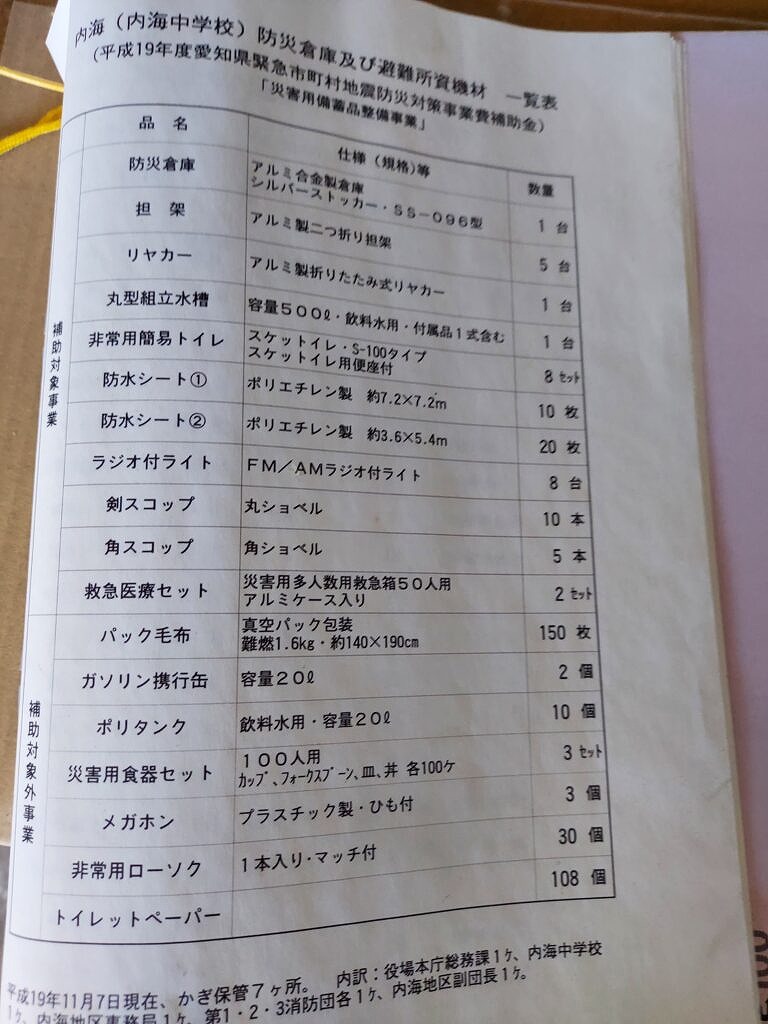 内海（内海中学校）防災倉庫及び避難所資機材　一覧表
(平成19年度愛知県緊急市町村地震防災対策事業費補助金)
「災害用備蓄品整備事業」
品　名　仕様（規格)等　数量
補助対象事業
防災倉庫　アルミ合金製倉庫　1 台
シルバーストッカー・ＳＳ－０９６型
担　架　アルミ製二つ折り担架　5 台
リヤカー　アルミ製折りたたみ式リヤカー　1 台
丸型組立水槽　容量５００ℓ・飲料水用・付属品１式含む　1 台
非常用簡易トイレ　スケットイレ・S-100タイプ　8 ｾｯﾄ
スケットイレ用便座付
防水シート①　ポリエチレン製　約7.2×7.2m　10 枚
防水シート②　ポリエチレン製　約3.6×5.4m　20 枚
ラジオ付ライト　ＦＭ／ＡＭラジオ付ライト　8 台
剣スコップ　丸ショベル　10 本
角スコップ　角ショベル　5 本
救急医療セット　災害用多人数用救急箱５０人用　2 ｾｯﾄ
アルミケース入り
補助対象外事業
パック毛布　真空パック包装　150 枚
難燃1.6kg・約140×190㎝
ガソリン携行缶　容量２０ℓ　2 個
ポリタンク　飲料水用・容量２０ℓ　10 個
災害用食器セット　１００人用　3 ｾｯﾄ
ｶｯﾌﾟ､ﾌｫｰｸｽﾌﾟｰﾝ､皿､丼 各100ケ
メガホン　プラスチック製・ひも付　3 個
非常用ローソク　１本入り・マッチ付　30 個
トイレットペーパー　108 個
平成19年11月7日現在、かぎ保管７ヶ所。　内訳：役場本庁総務課１ヶ、内海中学校
１ヶ、内海地区事務局１ヶ、第１・２・３消防団各１ヶ、内海地区副団長１ヶ。